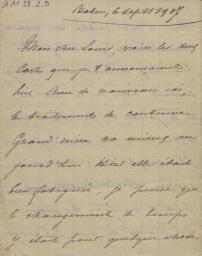 Baden, 6 sept 1907
Mon cher Louis, voici les deux
cartes que je t'annonçais
hier. Rien de nouveau ici,
le traitement de continue.
Grand'mère va mieux au
jourd'hui. Hier elle était
bien fatiguée, je pense que
le changement de temps
y était pour quelque chose